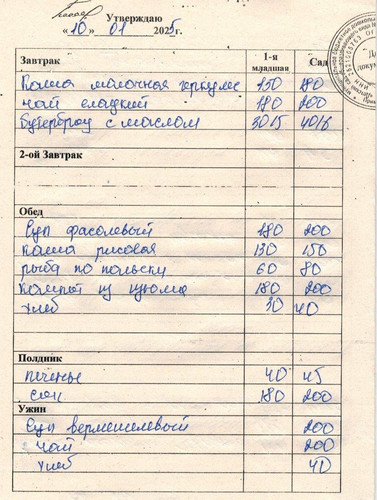 Утверждаю
«10» 01 2025г.
Завтрак 1-я младшая Сад
Каша молочная геркулес 150 180
Чай сладкий 180 200
Бутерброд с маслом 30/5 40/6
2-ой Завтрак
Обед
Суп фасолевый 180 200
Каша рисовая 130 150
рыба по польски 60 80
Компот из изюма 180 200
хлеб 30 40
Полдник
печенье 40 45
сок 180 200
Ужин
Суп вермешелевый 200
Чай 200
хлеб 40